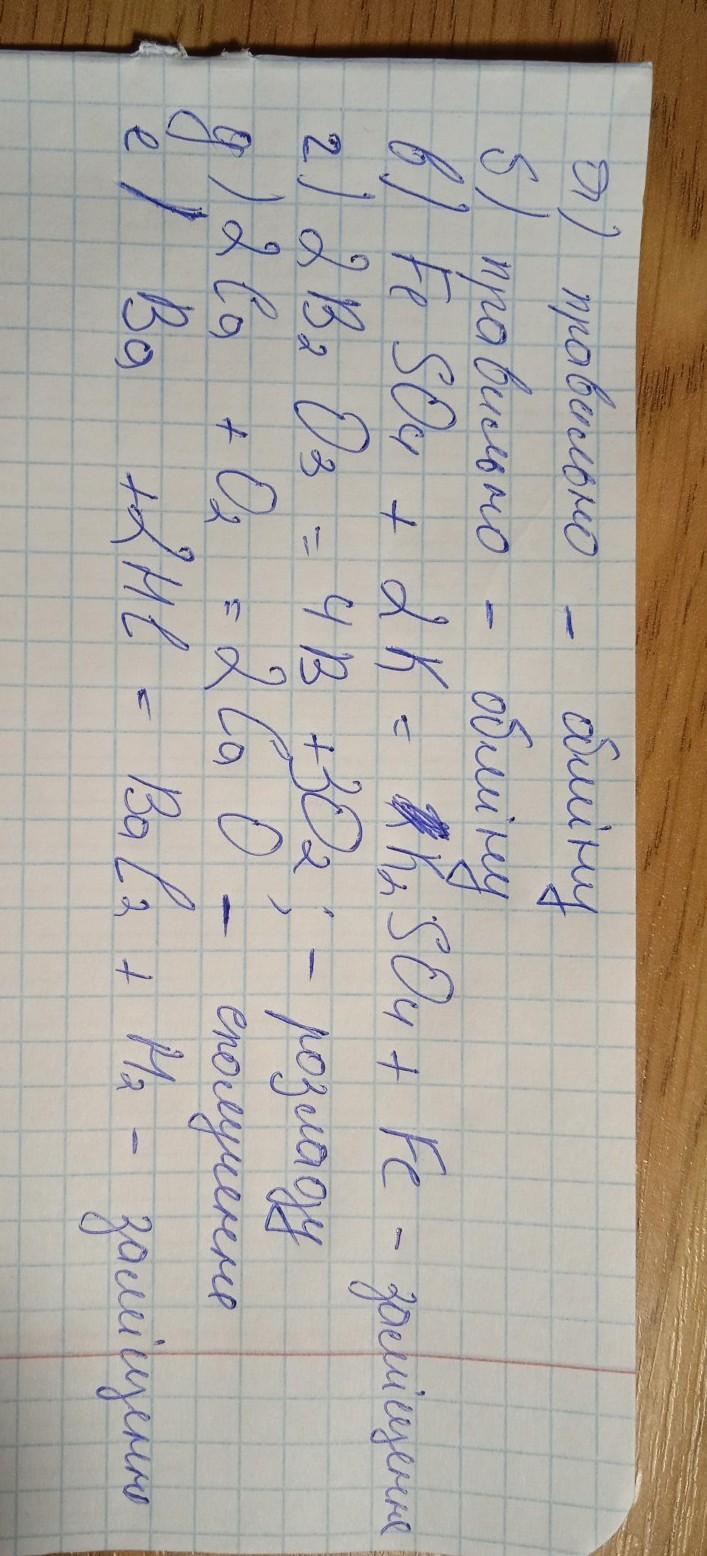 а) правильно - обміну
б) правильно - обміну
в) FeSO4 + 2K = K2SO4 + Fe - заміщення
г) 2B2O3 = 4B + 3O2; - розкладу
д) 2Ca + O2 = 2CaO - сполучення
е) Ba + 2HCl = BaCl2 + H2 - заміщення